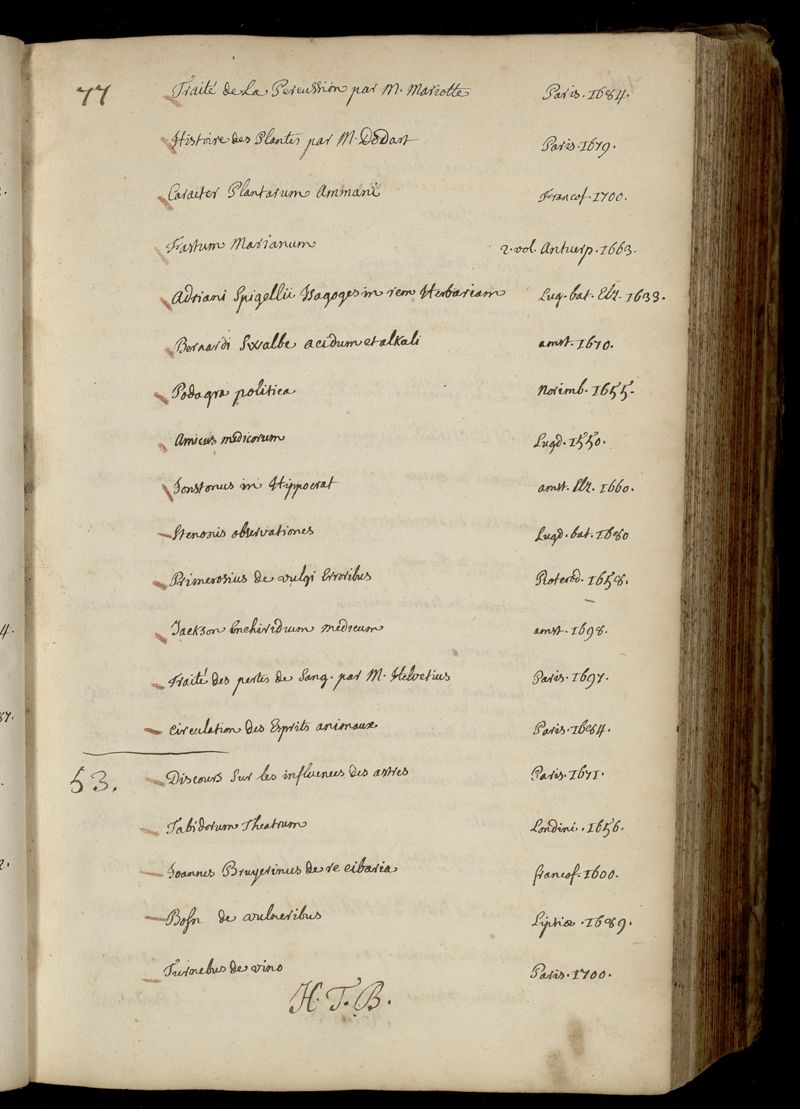 77 Traité de La Percussion par M. Mariotte Paris. 1684.
Histoire des Plantes par M. Dodart Paris. 1679.
Caracter Plantarum Ammani Francof. 1700.
Fastum Marianum 2. vol. Antuerp. 1663.
Adriani Spigellii Isagoges in rem Herbariam Lug. bat. Elz. 1633.
Bernardi Swalbe acidum et alkali amst. 1670.
Podagra politica Norimb. 1655.
Amicus medicorum Lugd. 1550.
Jonstonus in Hippocrat amst. Elz. 1660.
Stenonis observationes Lugd. bat. 1680
Primerosius de vulgi Erroribus Roterod. 1658.
Jackson Enchiridium medicum amst. 1698.
Traité des pertes de Sang. par M. Helvetius Paris. 1697.
Circulation des Esprits animaux Paris. 1684.
53. Discours Sur les influences des astres Paris. 1671.
Tabidorum Theatrum Londini. 1656.
Joannes Bruyerinus de re cibaria francof. 1600.
Bohn de vulneribus Lipsiæ. 1689.
Turnebus de vino Paris. 1700.
H. T. B.
4.
87.
2.